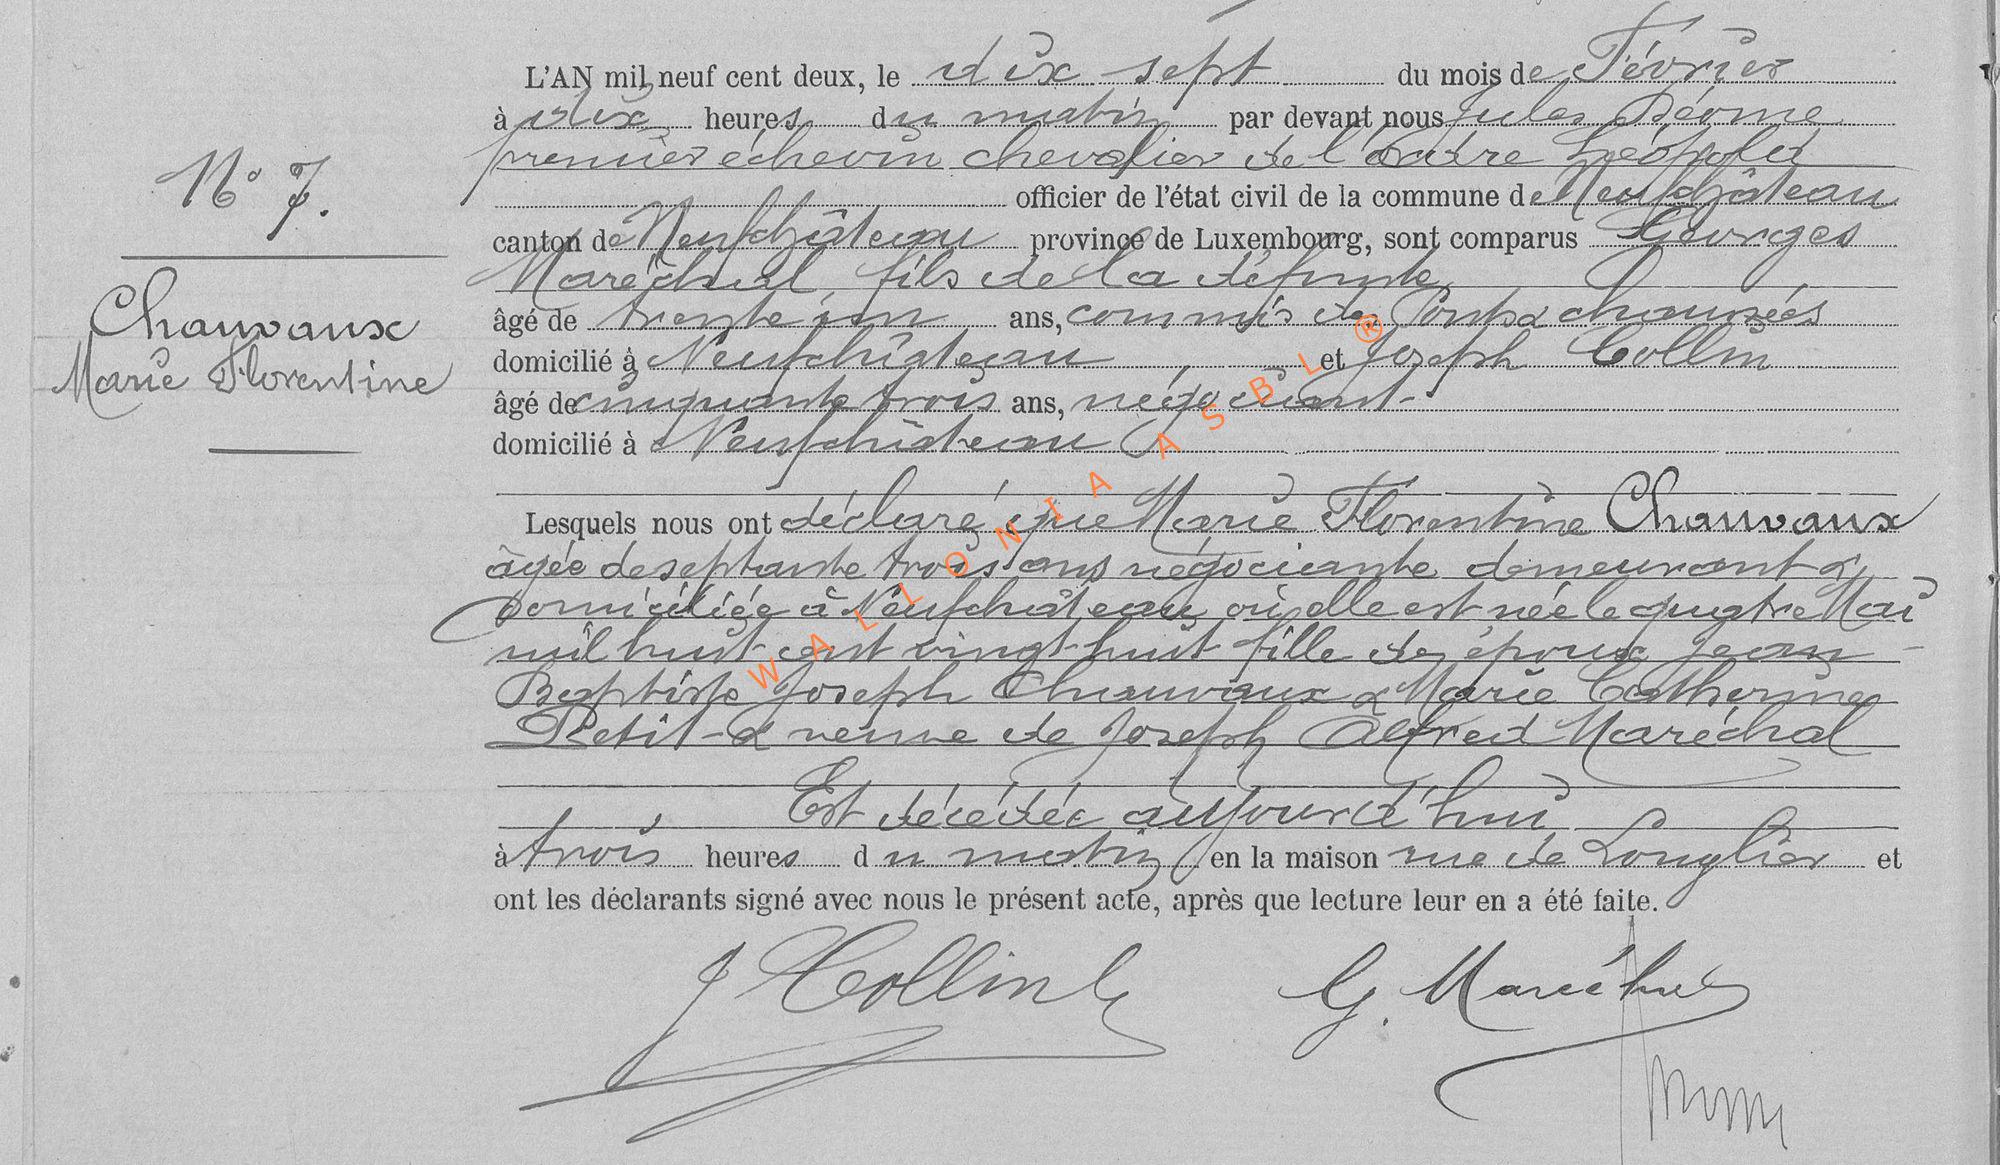 L'AN mil neuf cent deux, le dix sept du mois de Février
à dix heures du matin par devant nous Jules
premier échevin chevalier de l'Ordre Léopold
officier de l'état civil de la commune de Neufchâteau
canton de Neufchâteau province de Luxembourg, sont comparus Georges
Maréchal, fils de la défunte
âgé de trente un ans, commis des Ponts & chaussées
domicilié à Neufchâteau et Joseph Collin
âgé de cinquante trois ans, négociant
domicilié à Neufchâteau
N° 7.
Chauvaux
Marie Florentine
Lesquels nous ont déclaré que Marie Florentine Chauvaux
âgée de septante trois ans négociante demeurant &
domiciliée à Neufchâteau où elle est née le quatre Mai
mil huit cent vingt huit fille des époux Jean
Baptiste Joseph Chauvaux & Marie Catherine
Petit & veuve de Joseph Alfred Maréchal
Est décédée aujourd'hui
à trois heures du matin en la maison rue de Longlier et
ont les déclarants signé avec nous le présent acte, après que lecture leur en a été faite.
J Collin G. Maréchal
WALLONIA ASBL ®